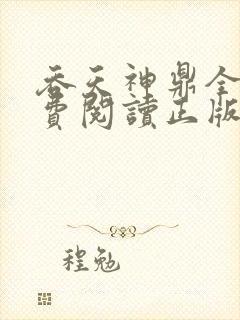 吞天神鼎全
費閱讀正版
程勉